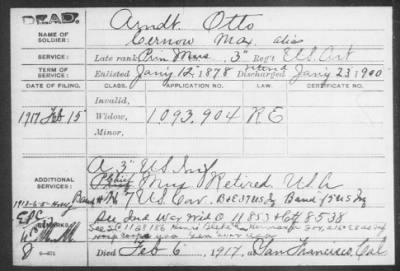 DEAD.
NAME OF SOLDIER:
Arndt. Otto
Cernow Max, alias
SERVICE:
Late rank Prin Mus, 3" Reg't U.S. Art
Enlisted Jan'y 12, 1878 Discharged Jan'y 23, 1900
DATE OF FILING. CLASS. APPLICATION NO. LAW. CERTIFICATE NO.
Invalid,
1917 Feb 15 Widow, 1.093.904 R E
Minor,
ADDITIONAL SERVICES:
A, 3" US Inf
Mus Retired. U S A
Band 7 U.S. Cav. B & E 3 US Inf Band
See Ind War Wid O 11853 + Ctf 8538
REMARKS:
Died Feb 6, 1917, at San Francisco, Cal